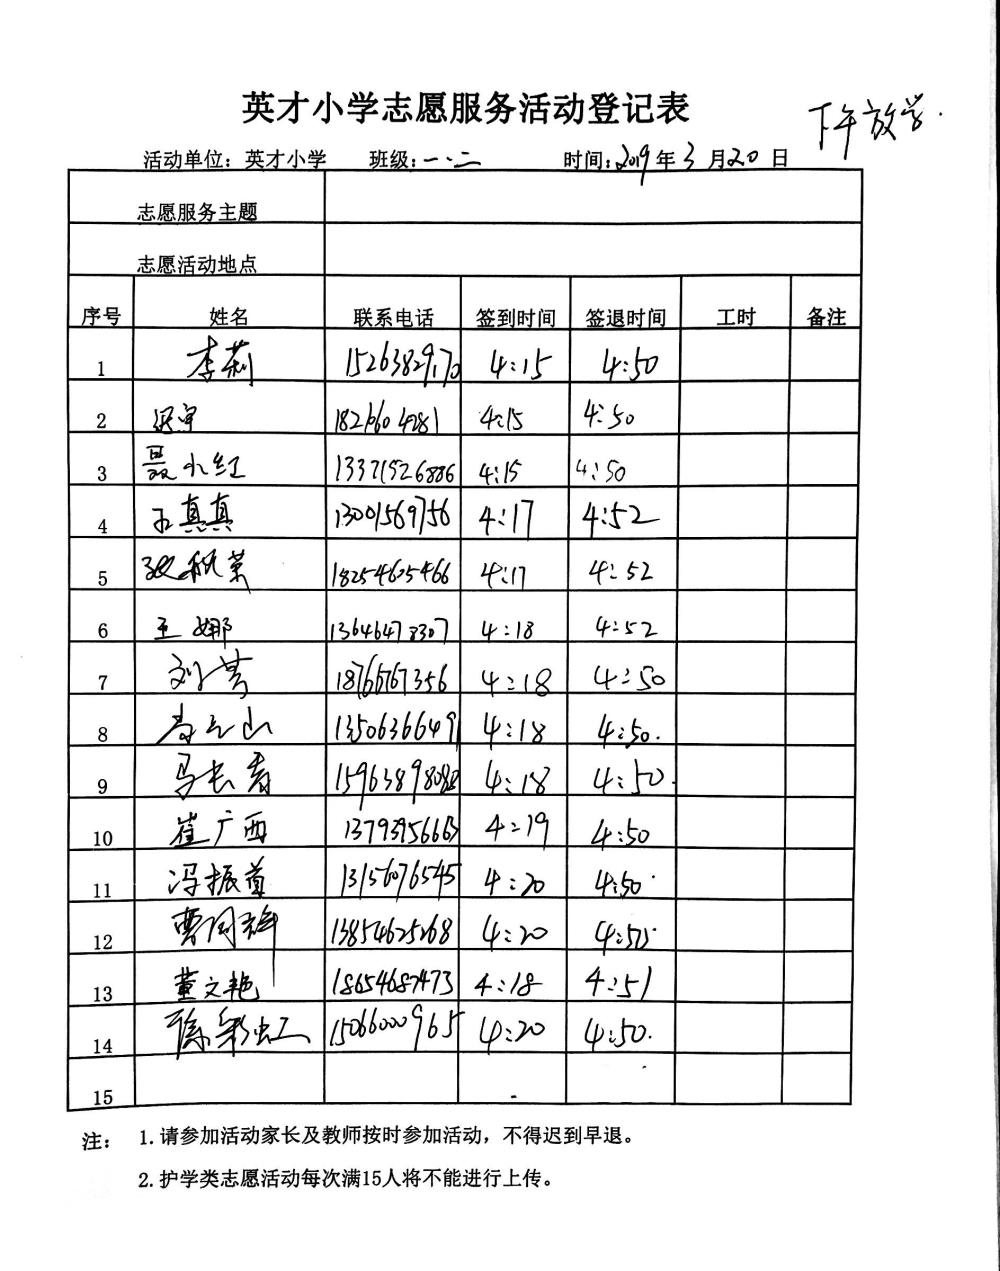 英才小学志愿服务活动登记表
下午放学.
活动单位：英才小学 班级：一.二 时间：2019年3月20日
志愿服务主题
志愿活动地点
序号 姓名 联系电话 签到时间 签退时间 工时 备注
1 李莉 4:15 4:50
2 4:15 4:50
3 聂小红 13371526886 4:15 4:50
4 王真真 13001569756 4:17 4:52
5 18254625466 4:17 4:52
6 王娜 13646478307 4:18 4:52
7 刘芳 18766767356 4:18 4:50
8 1350636649 4:18 4:50.
9 马长青 4:18 4:50.
10 崔广西 4:19 4:50
11 冯振道 13156076545 4:20 4:50
12 曹同祥 13854625268 4:20
13 董文艳 18654687473 4:18 4:51
14 孙彩虹 15066000965 4:20 4:50.
15
注： 1.请参加活动家长及教师按时参加活动，不得迟到早退。
2.护学类志愿活动每次满15人将不能进行上传。